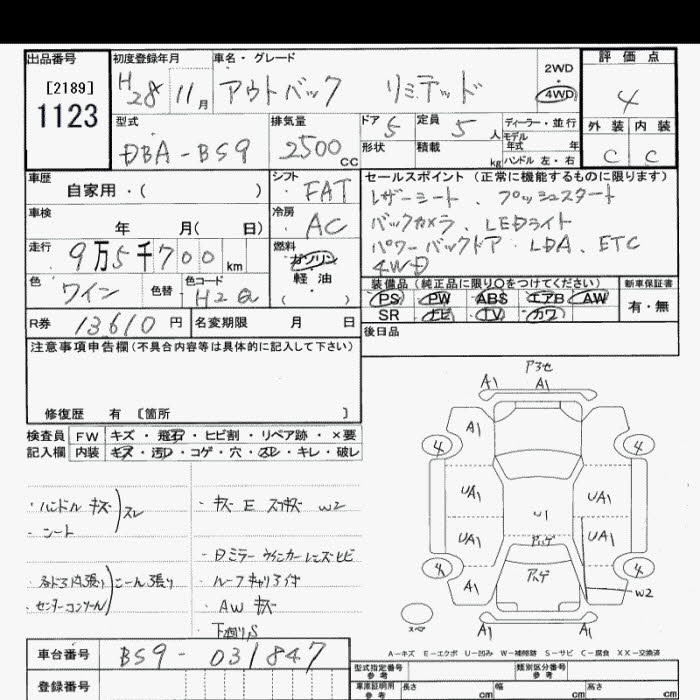 出品番号 初度登録年月 車名・グレード 評価点
[2189] H28 11月 アウトバック リミテッド 2WD 4
1123 4WD
型式 排気量 ドア 5 定員 5人 ディーラー・並行 外装 内装
DBA-BS9 2500cc 形状 積載 kg モデル年式 年 C C
ハンドル 左・右
車歴 シフト セールスポイント (正常に機能するものに限ります)
自家用・( ) FAT レザーシート、プッシュスタート
車検 冷房 バックカメラ、LEDライト
年 月( 日) AC パワーバックドア・LDA、ETC
走行 燃料 4WD
9万5千700km ガソリン
軽油
( )
色 色替 色コード 装備品 (純正品に限り○をつけてください) 新車保証書
ワイン H2Q PS PW ABS エアB AW 有・無
SR ナビ TV カワ
R券 13610円 名変期限 月 日 後日品
注意事項申告欄(不具合内容等は具体的に記入して下さい)
修復歴 有 [箇所 ]
検査員 FW キズ・飛石・ヒビ割・リペア跡・×要
記入欄 内装 キズ・汚レ・コゲ・穴・スレ・キレ・破レ
・ハンドル キズ スレ
・シート
センターコンソール
・キズ E スリキズ W2
・Dミラーウインカーレンズヒビ
・ルーフキャリア付
・AW キズ
下廻りS
A1 A1
A1
4 4
UA1 UA1
U1
UA1 UA1
4 4
A1 W2
A1 A1
A-キズ E-エクボ U-凹み W-補修跡 S-サビ C-腐食 XX-交換済
車台番号 BS9-031847
登録番号
型式指定番号 参考 類別区分番号 参考
車庫証明用 参考 長さ cm 幅 cm 高さ cm